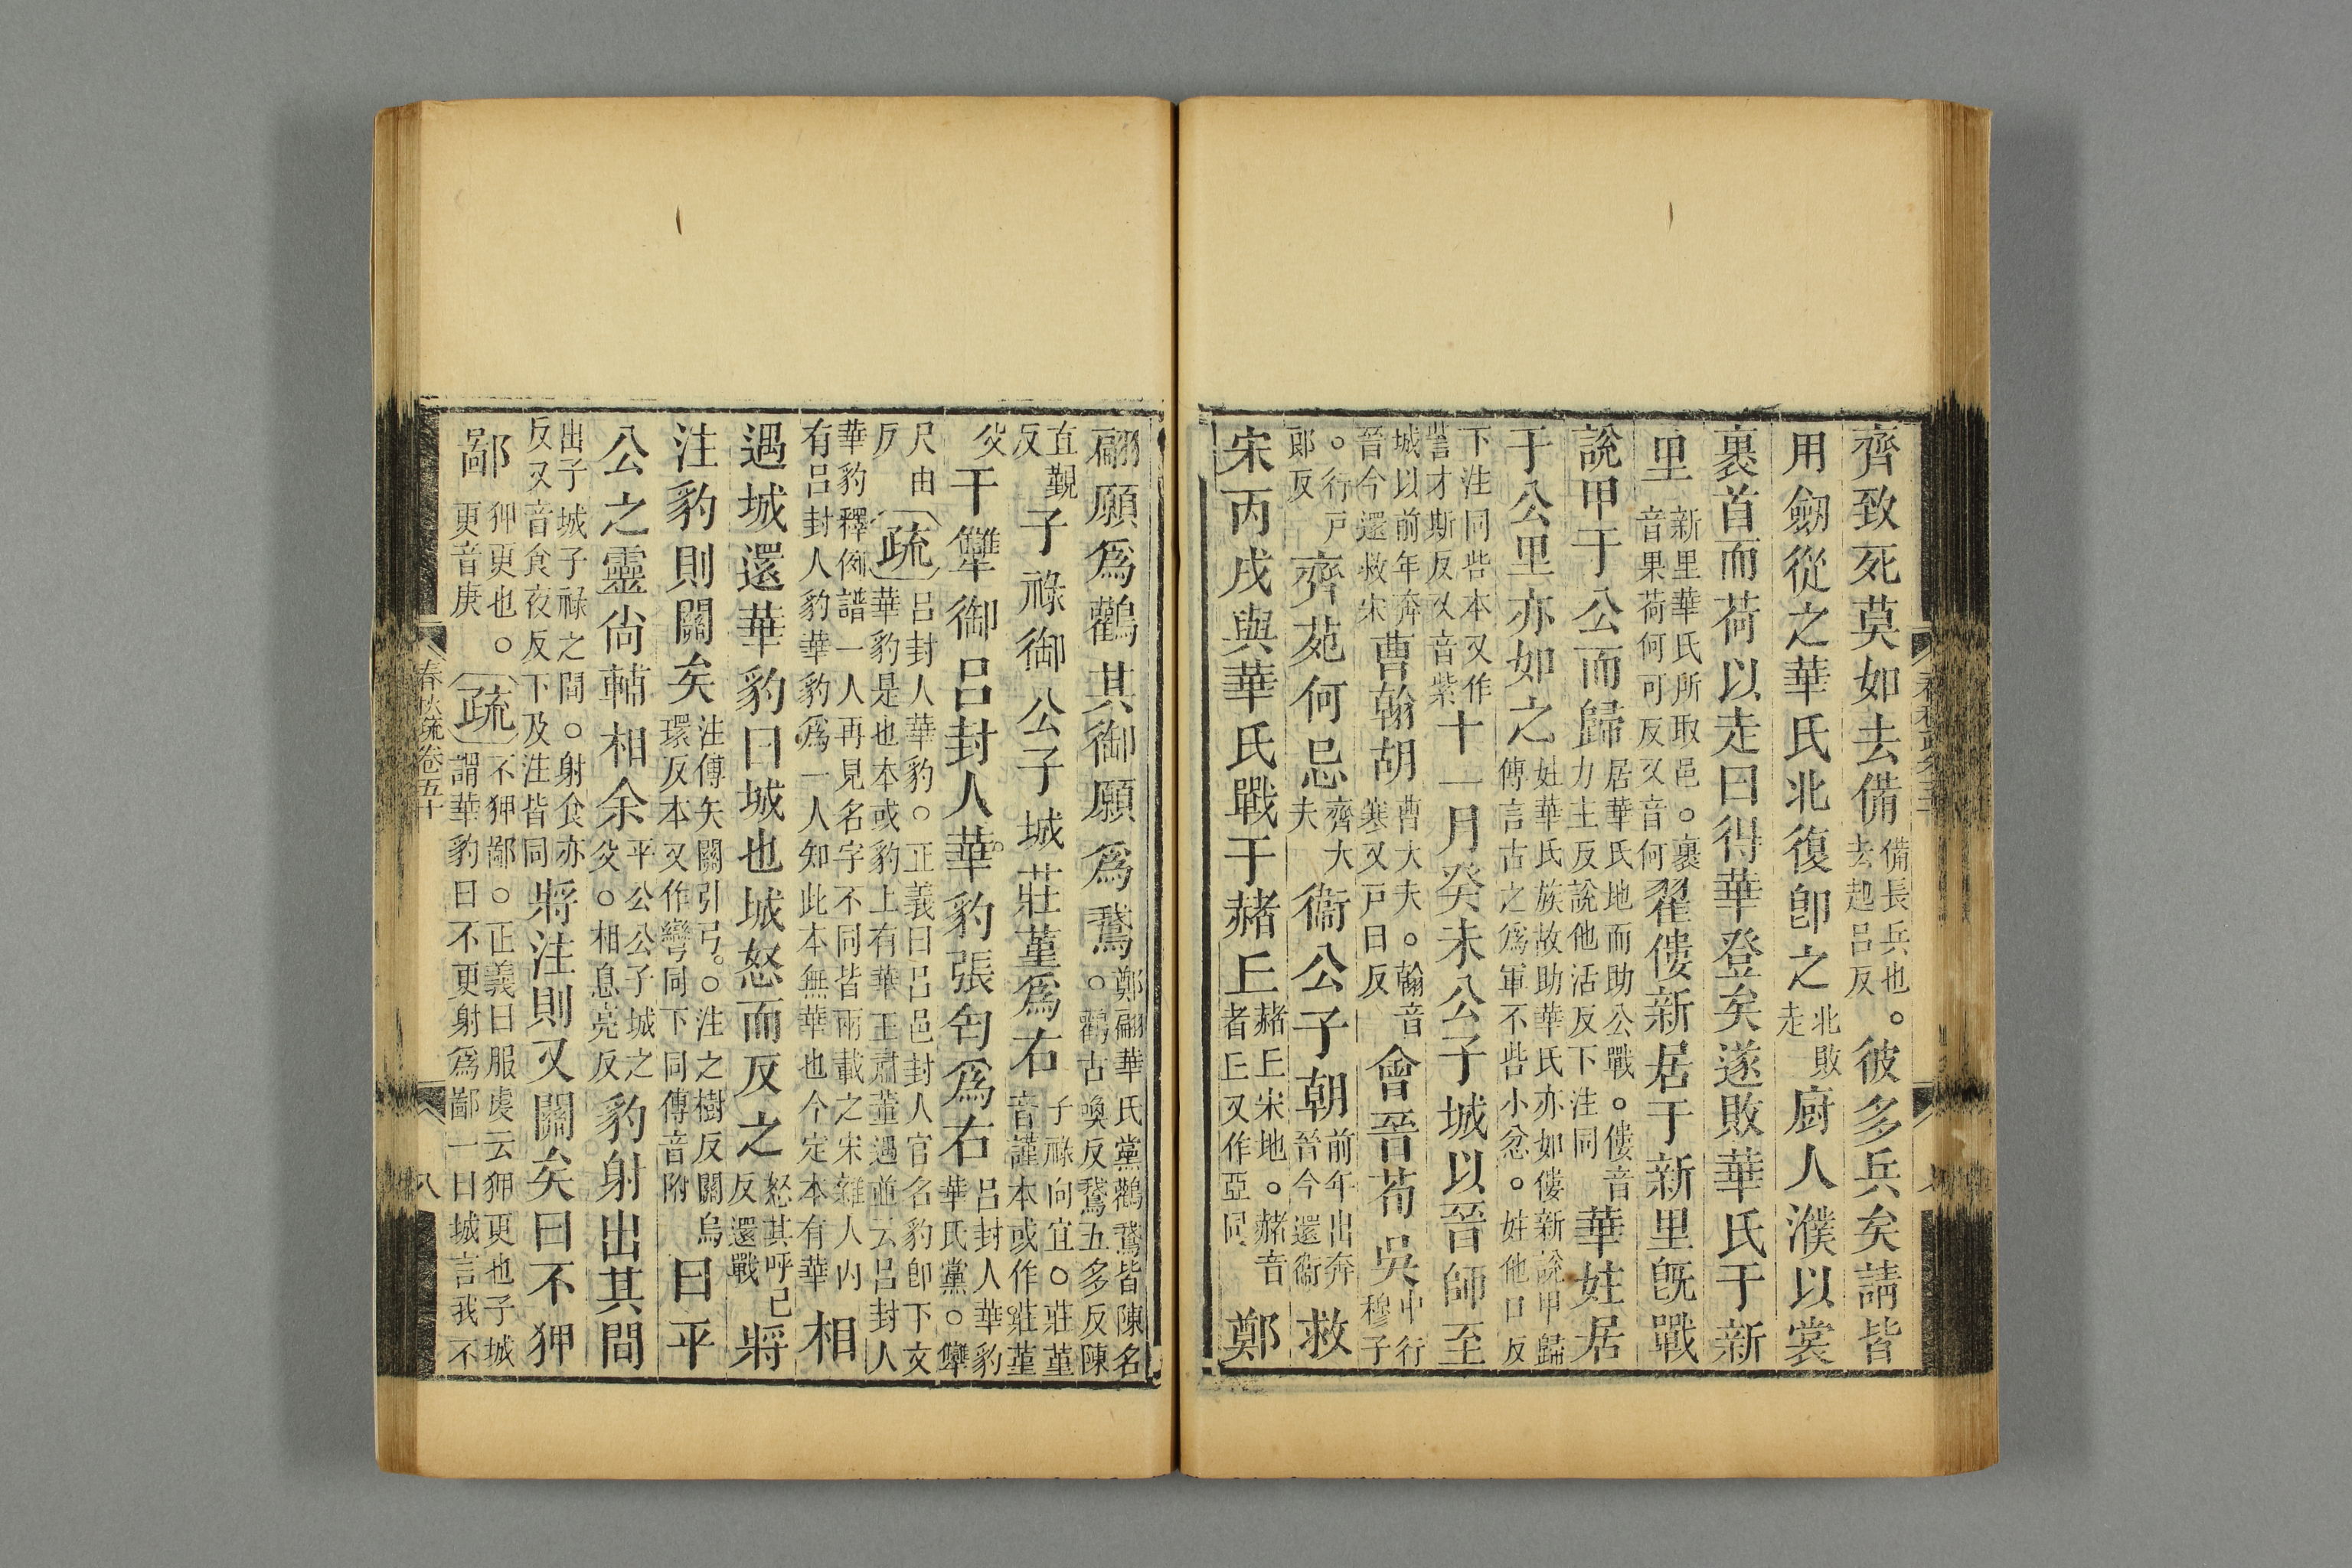 齊致死莫如去備備長兵也。去起呂反彼多兵矣請皆
用劒從之華氏北復卽之北敗走厨人濮以裳
裹首而荷以走曰得華登矣遂敗華氏于新
里新里華氏所取邑。裹音果荷何可反又音何翟僂新居于新里旣戰
說甲于公而歸居華氏地而助公戰。僂音力主反說他活反下注同華妵居
于公里亦如之妵華氏族故助華氏亦如僂新說甲歸傳言古之爲軍不呰小忿。妵他口反
下注同呰本又作訾才斯反又音紫十一月癸未公子城以晉師至
城以前年奔晉今還救宋曹翰胡曹大夫。翰音寒又戸旦反會晉荀吳中行穆子
。行戸郎反齊苑何忌齊大夫衞公子朝前年出奔晉今還衞救
宋丙戌與華氏戰于赭丘赭丘宋地。赭音者丘又作亞同鄭
翩願爲鸛其御願爲鵞鄭翩華氏黨鸛鵞皆陳名。鸛古喚反鵞五多反陳
直覲反子祿御公子城莊堇爲右子祿向宜。莊堇音謹本或作莊菫
父干犫御呂封人華豹張匄爲右呂封人華豹華氏黨。犫
尺由反疏呂封人華豹。正義曰呂邑封人官名豹卽下文華豹是也本或豹上有華王肅董遇並云呂封人
華豹釋例譜一人再見名字不同皆兩載之宋雜人內有呂封人豹華豹爲一人知此本無華也今定本有華相
遇城還華豹曰城也城怒而反之怒其呼己反還戰將
注豹則關矣注傅矢關引弓。注之樹反關烏環反本又作彎同下同傅音附曰平
公之靈尙輔相余平公公子城之父。相息亮反豹射出其間
出子城子祿之間。射食亦反又音食夜反下及注皆同將注則又關矣曰不狎
鄙狎更也。更音庚疏不狎鄙。正義曰服虔云狎更也子城謂華豹曰不更射爲鄙一曰城言我不
春秋疏卷五十
八